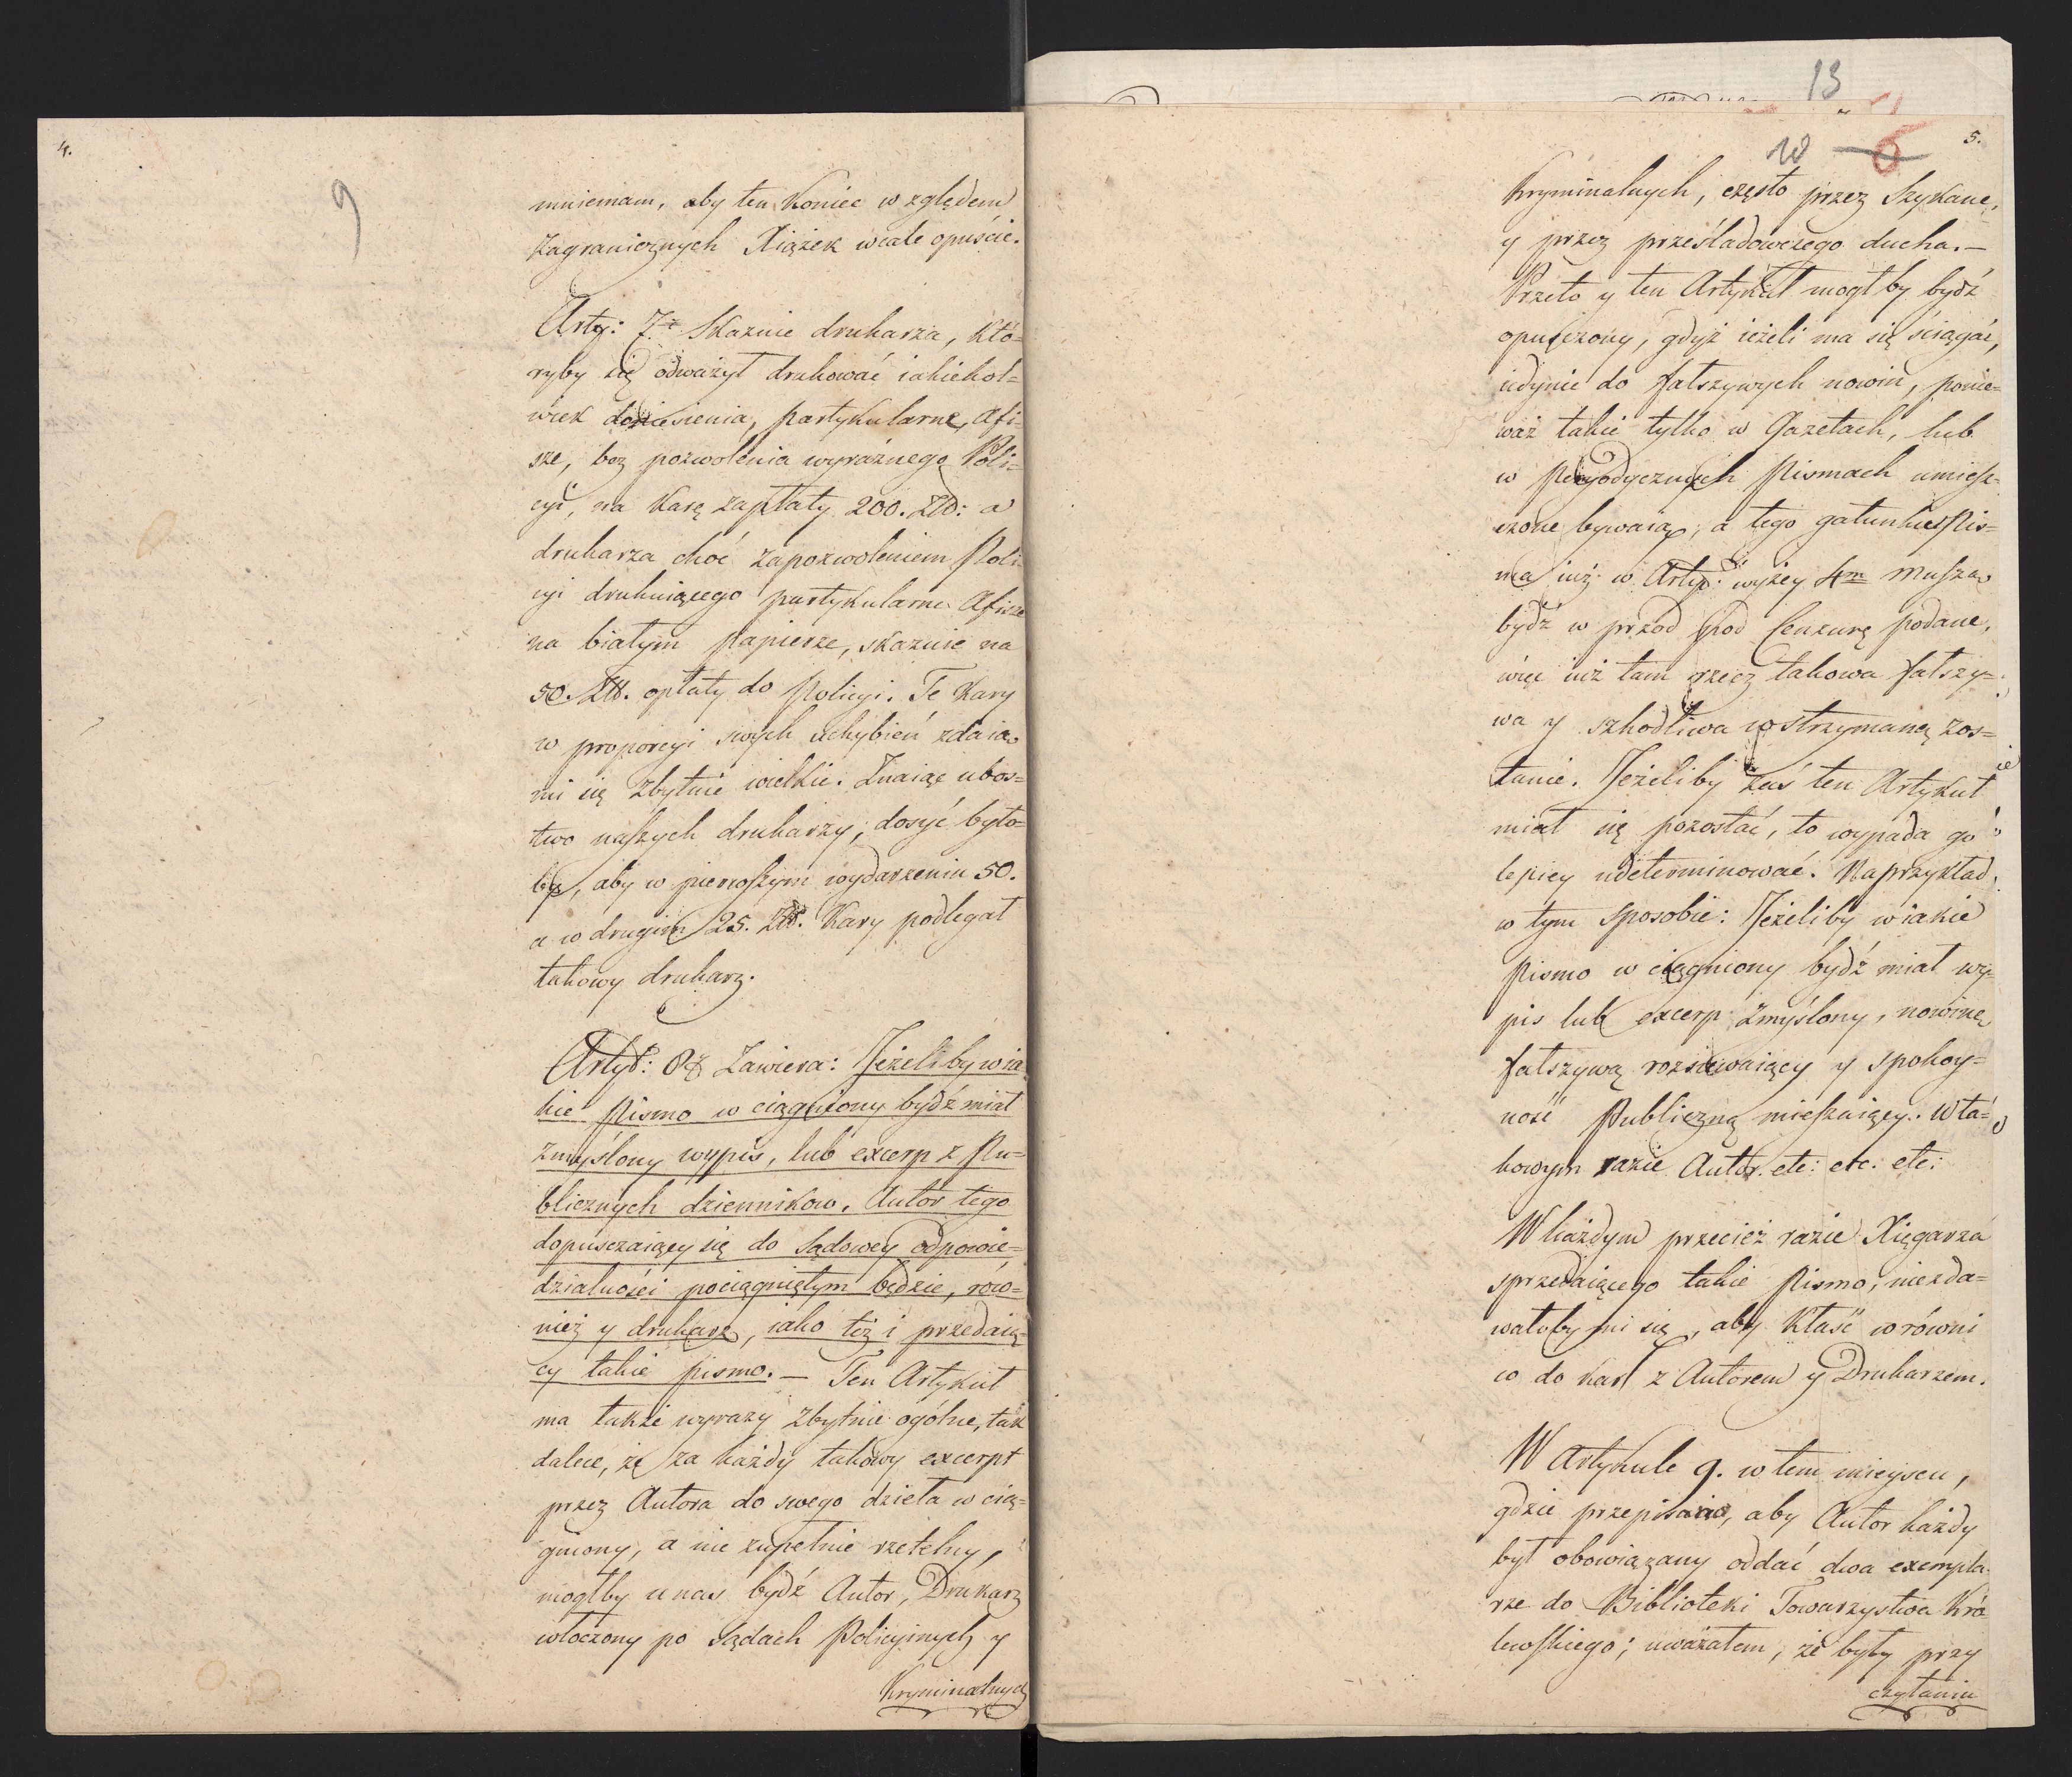 4.
9
mniemam, aby ten koniec względem
Zagranicznych Xiążek wcale opuście.
Arty: 7. Skazuie drukarza, któ-
ryby się odważył drukować iakiekol-
wiek doniesienia, partykularne, Afi-
sze, bez pozwolenia wyraźnego Poli-
cyi, na karę zapłaty 200. Zł: a
drukarza choć zapozwoleniem Poli
cyi drukuiącego partykularne Afisze
na białym papierze, skazuie na
50. Zł. opłaty do Policyi. Te kary
w proporcyi swych uchybień zdaia
mi się zbytnie wielkie. Znaiąc ubos-
two naszych drukarzy, dosyć było-
by, aby w pierwszym wydarzeniu 50.
a w drugim 25. Zł. Kary podlegał
takowy drukarz.
Artyk: 8 Zawiera: Jeżeliby w ia
kie Pismo w ciągniony bydź miał
zmyślony wypis, lub excerp z Pu-
blicznych dzienników. Autor tego
dopusczaiący się do Sądowey odpowie-
dzialności pociągniętym będzie, rów-
nież y drukarz, iako też i przedaią-
cy takie pismo. — Ten Artykuł
ma także wyrazy zbytnie ogólne, tak
dalece, że za każdy takowy excerpt
przez Autora do swego dzieła w cią-
gniony, a nie zupełnie rzetelny,
mogłby unas bydź Autor, Drukarz
włoczony po Sądach Policyinych y
Kryminalnych
13
10
6
5.
Kryminalnych, często przez Szykane,
y przez prześladowczego ducha. —
Przeto y ten Artykuł mogłby bydź
opuszczony, gdyż ieżeli ma się ściągać,
iedynie do fałszywych nowin, ponie-
waż takie tylko w Gazetach, lub
w Peryodycznych Pismach umiesz-
czone bywaią, a tego gatunku Pis-
ma iuż w Artyk: wyżey 4m muszą
bydź w przod pod Cenzurę podane,
więc iuż tam rzecz takowa fałszy-
wa y szkodliwa wstrzymaną zos-
tanie. Jeżeliby zaś ten Artykuł
miał się pozostać, to wypada go
lepiey udeterminować. Naprzykład
w tym sposobie: Jeżeliby w iakie
Pismo w ciągniony bydź miał wy-
pis lub excerp zmyślony, nowinę
fałszywą rozsiewaiący y spokoy-
ność Publiczną mieszaiący. Wta-
kowym razie Autor. etc: etc: etc:
W każdym przecież razie Xięgarza
sprzedaiącego takie Pismo, niezda-
wałoby mi się, aby kłaść w równi
co do kar z Autorem y Drukarzem.
W Artykule 9. w tem mieyscu,
gdzie przepisano, aby Autor każdy
był obowiązany oddać dwa exempla-
rze do Biblioteki Towarzystwa Kró
lewskiego; uważałem, że były przy
czytaniu